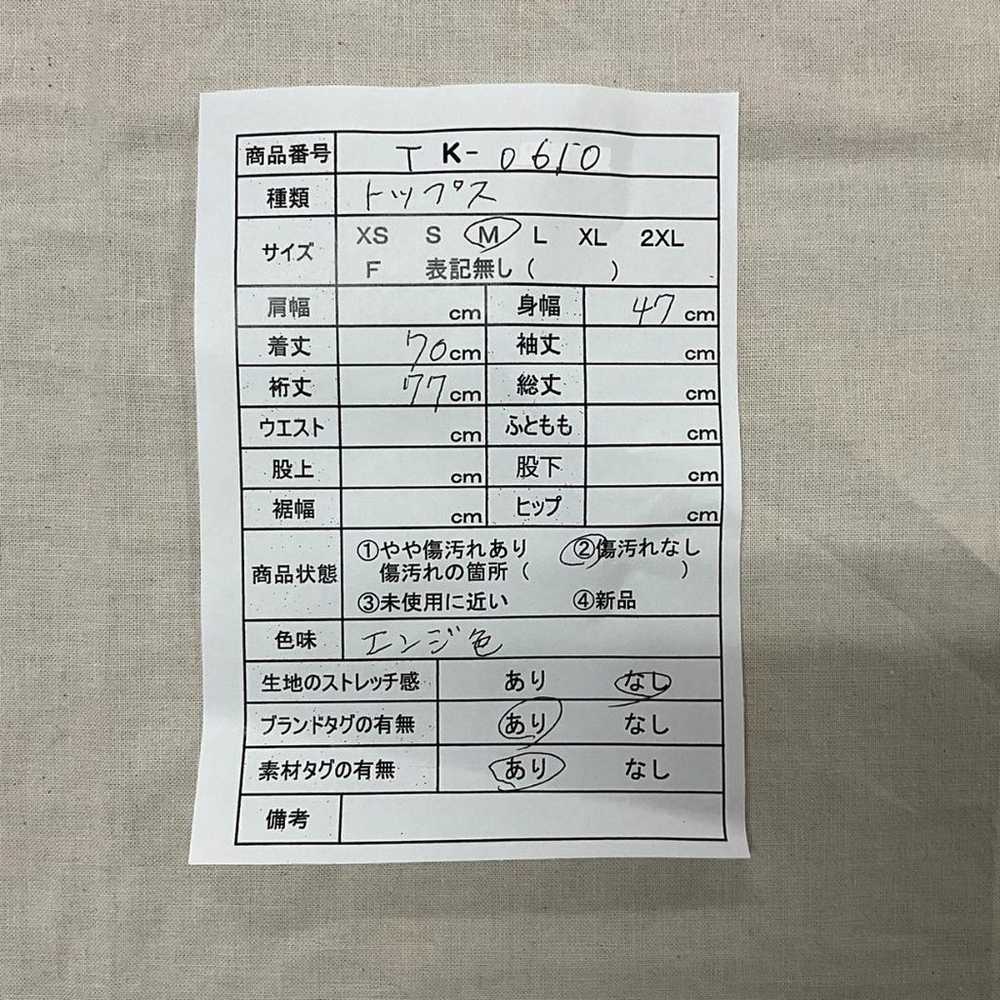 商品番号 T K- 0650
種類 トップス
サイズ XS S M L XL 2XL
F 表記無し ( )
肩幅 cm 身幅 47 cm
着丈 70 cm 袖丈 cm
裄丈 77 cm 総丈 cm
ウエスト cm ふともも cm
股上 cm 股下 cm
裾幅 cm ヒップ cm
商品状態 ①やや傷汚れあり ②傷汚れなし
傷汚れの箇所 ( )
③未使用に近い ④新品
色味 エンジ色
生地のストレッチ感 あり なし
ブランドタグの有無 あり なし
素材タグの有無 あり なし
備考